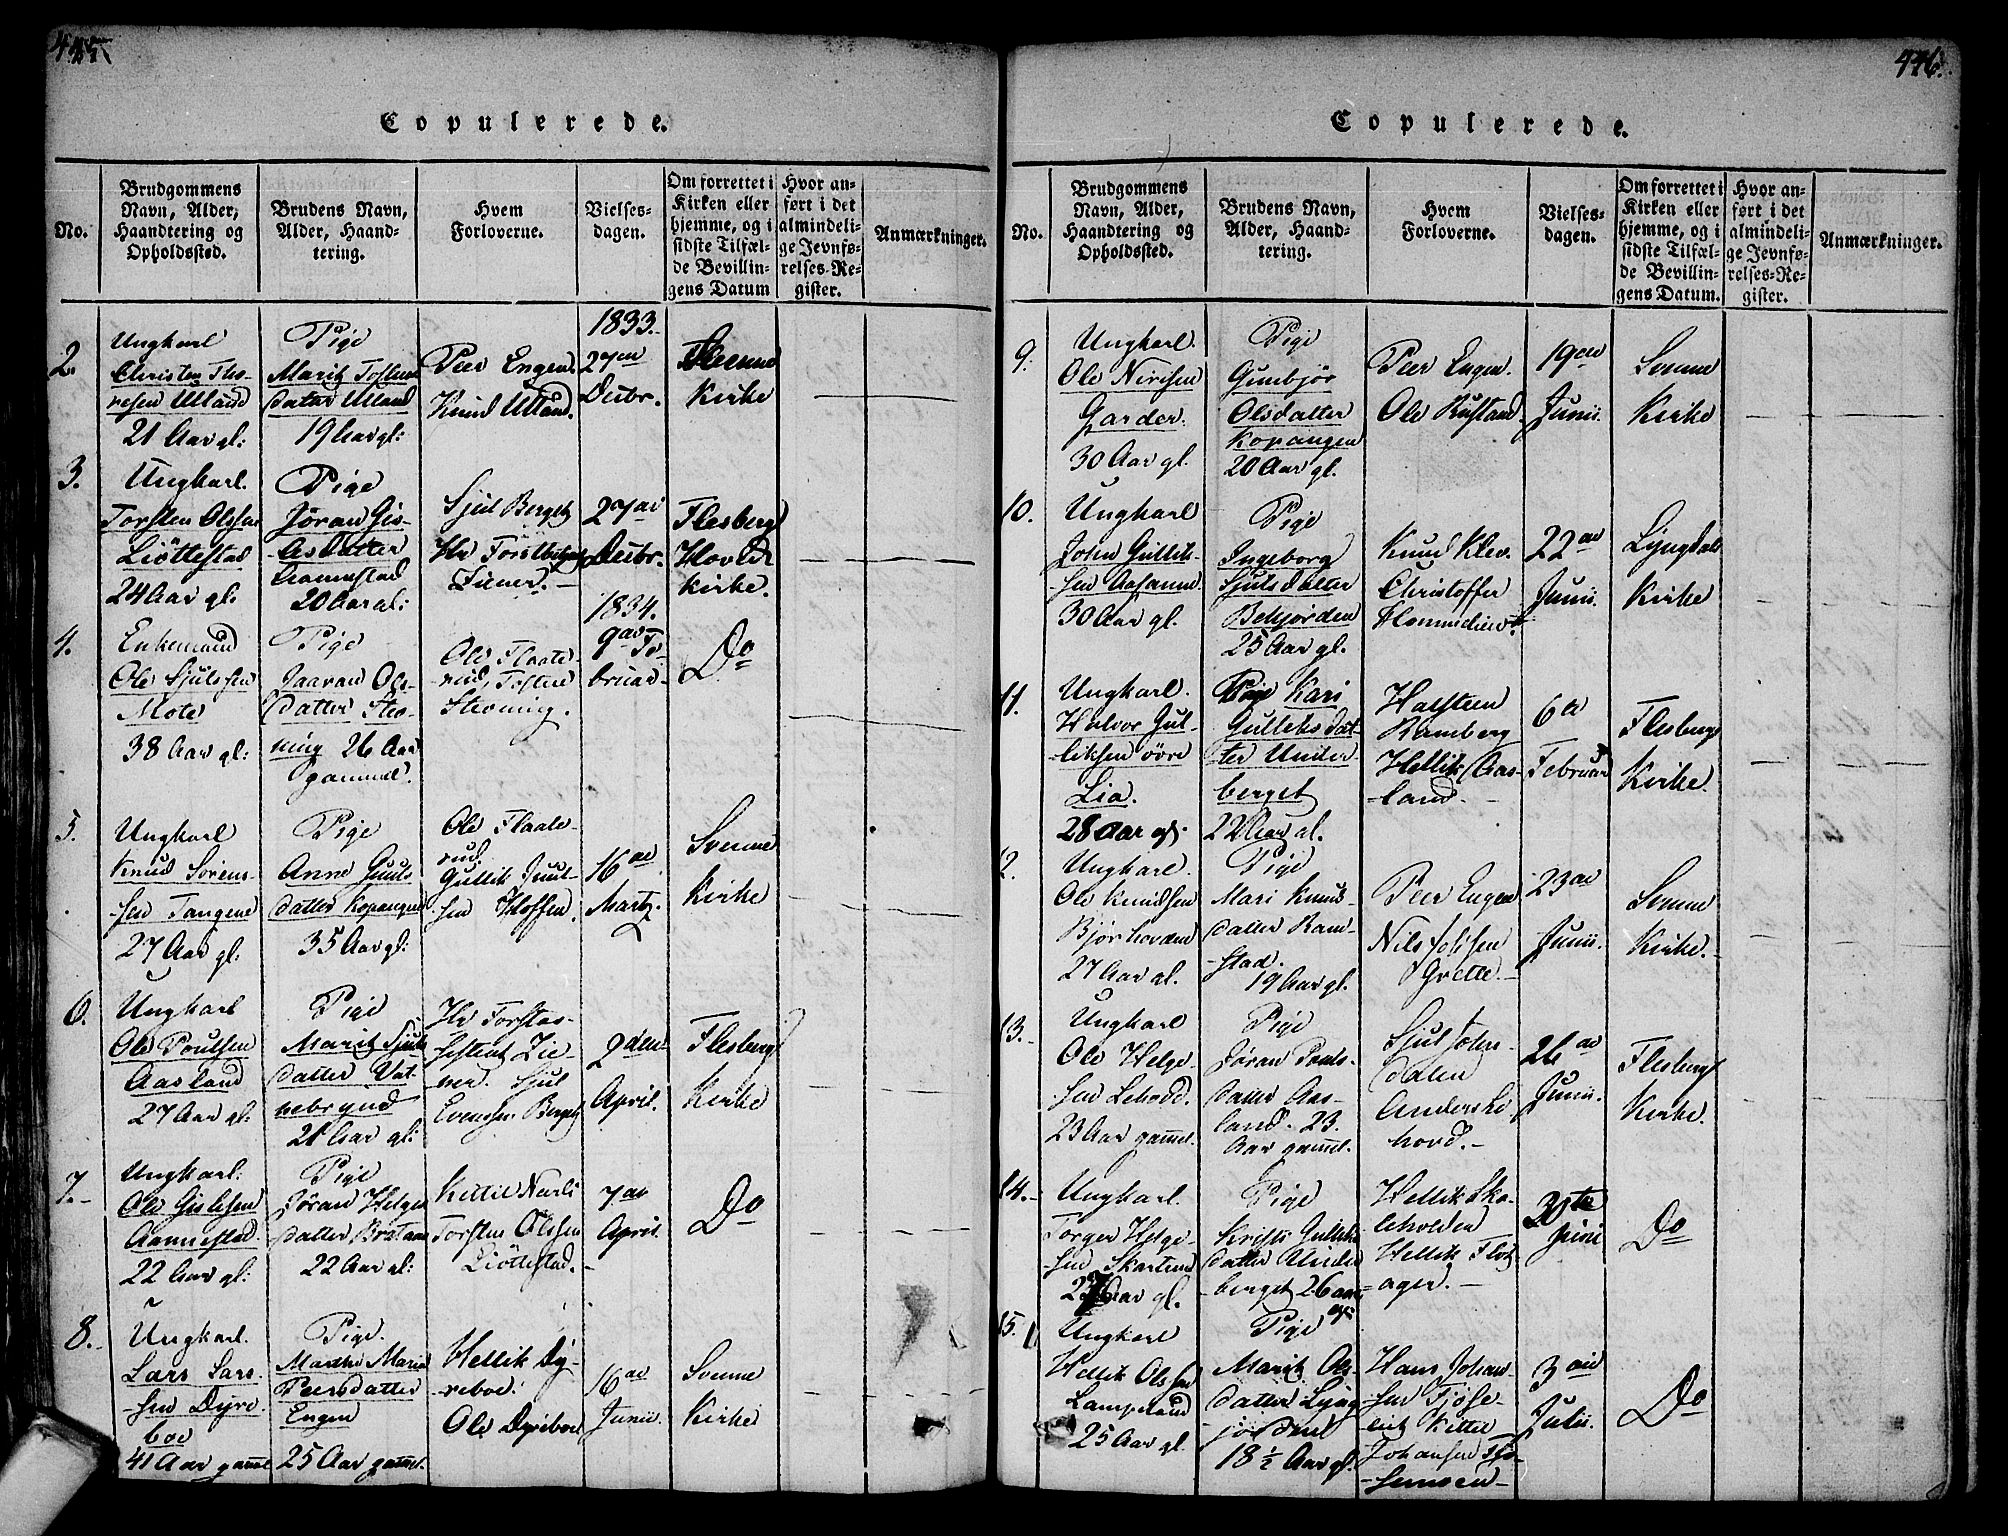 445.
Copulerede.
No.
Brudgommens
Navn, Alder,
Haandtering og
Opholdssted.
Brudens Navn,
Alder, Haand-
tering.
Hvem
Forloverne.
Vielses-
dagen.
Om forrettet i
Kirken eller
hjemme, og i
sidste Tilfæl-
de Bevillin-
gens Datum
Hvor an-
ført i det
almindeli-
ge Jevnfø-
relses-Re-
gister.
Anmærkninger.
2.
Ungkarl
Christen Tho-
resen Uland
21 Aar gl:
Pige
Marit Tostens
datter Uland
19 Aar gl:
Peer Engen.
Knud Uland.
1833.
27de
Decbr.
Svenne
Kirke
3.
Ungkarl.
Torsten Olssen
Liøttestad
24 Aar gl:
Pige
Jøran Gis-
lesdatter
Aamestad
20 Aar gl:
Sjul Berget
Hr
27de
Decbr.
Flesberg
Hoved
Kirke.
4.
Enkemand
Ole Sjulssen
Mote
38 Aar gl:
Pige
Jaaran Ols-
datter Stev-
ning 26 Aar
gammel.
Ole Flaate-
rud, Tosten
Stevning.
1834.
9de Fe-
bruar
Do
5.
Ungkarl
Knud Sørens-
sen Tangene
27 Aar gl:
Pige
Anne Juuls
datter Kopangen
35 Aar gl:
Ole Flaate-
rud.
Gullik Juul-
sen Hoffen.
16de
Martz.
Svenne
Kirke
6.
Ungkarl
Ole Poulsen
Aasland
27 Aar gl:
Pige
Marit Sjuls
datter Vat-
nebrynd
21 Aar gl:
Hr Forstas-
sistent Zie-
ner. Sjul
Evensen Berget
2den
April.
Flesberg
Kirke
7.
Ungkarl:
Ole Gislesen
Aamestad.
22 Aar gl:
Pige
Jøran Helges
datter Brataas
22 Aar gl:
Kittil Narli
Torsten Olssen
Liøttestad.
7de
April.
Do
8.
Ungkarl.
Lars Lars-
sen Dyre-
boe
41 Aar gamel
Pige.
Marthe Maria
Peersdatter
Engen
25 Aar gamel.
Hellik Dy-
reboe.
Ole Dyreboe
16de
Junii.
Svenne
Kirke
446.
Copulerede.
No.
Brudgommens
Navn, Alder,
Haandtering og
Opholdssted.
Brudens Navn,
Alder, Haand-
tering.
Hvem
Forloverne.
Vielses-
dagen.
Om forrettet i
Kirken eller
hjemme, og i
sidste Tilfæl-
de Bevillin-
gens Datum.
Hvor an-
ført i det
almindeli-
ge Jevnfø-
relses-Re-
gister.
Anmærkninger.
9.
Ungkarl.
Ole Nirisen
Garder.
30 Aar gl.
Pige
Gunbjør
Olsdatter
Kopangen
20 Aar gl.
Peer Engen.
Ole Rustand
19de
Junii.
Svenne
Kirke
10.
Ungkarl
John Gullik-
sen Aasanne
30 Aar gl.
Pige
Ingeborg
Sjulsdatter
Bekjorden
25 Aar gl.
Knud Klev.
Christoffer
22de
Junii.
Lyngdals
Kirke
11.
Ungkarl.
Halvor Gul-
liksen øvre
Lia.
28 Aar gl.
Pige Kari
Gulleksdat-
ter Under-
berget
22 Aar gl.
Halsteen
Ramberg
Hellik Aas-
land.
6te
Februar
Flesberg
Kirke.
12.
Ungkarl.
Ole Knudsen
Bjørhovden
27 Aar gl.
Pige
Mari Knuds
datter Ram-
stad.
19 Aar gl.
Peer Engen
Nils Joelsen
Grette.
23de
Junii.
Svenne
Kirke.
13.
Ungkarl
Ole Helge-
sen Lehovd.
23 Aar gamel.
Pige
Jøran Pouls-
datter Aas-
land. 23
Aar gamel.
Sjul Johns-
dalen
Anders Le-
hovd.
26de
Junii.
Flesberg
Kirke.
14.
Ungkarl.
Torger Helge-
sen Skartum
27 Aar gl.
Pige
Kristi Gulliks
datter Under
berget 26 aar
gl.
Hellik Ska-
leholden
Hellik Flot-
ager.
Juni
Do
15.
Ungkarl
Hellik Olssen
Lampeland
25 Aar gl.
Pige
Marit Ols-
datter Lyng-
jordmel
18 1/2 Aar gl.
Hans Johan-
sen Fjøse-
eie Kittil
Johansen Fjø-
3die
Julii.
Do